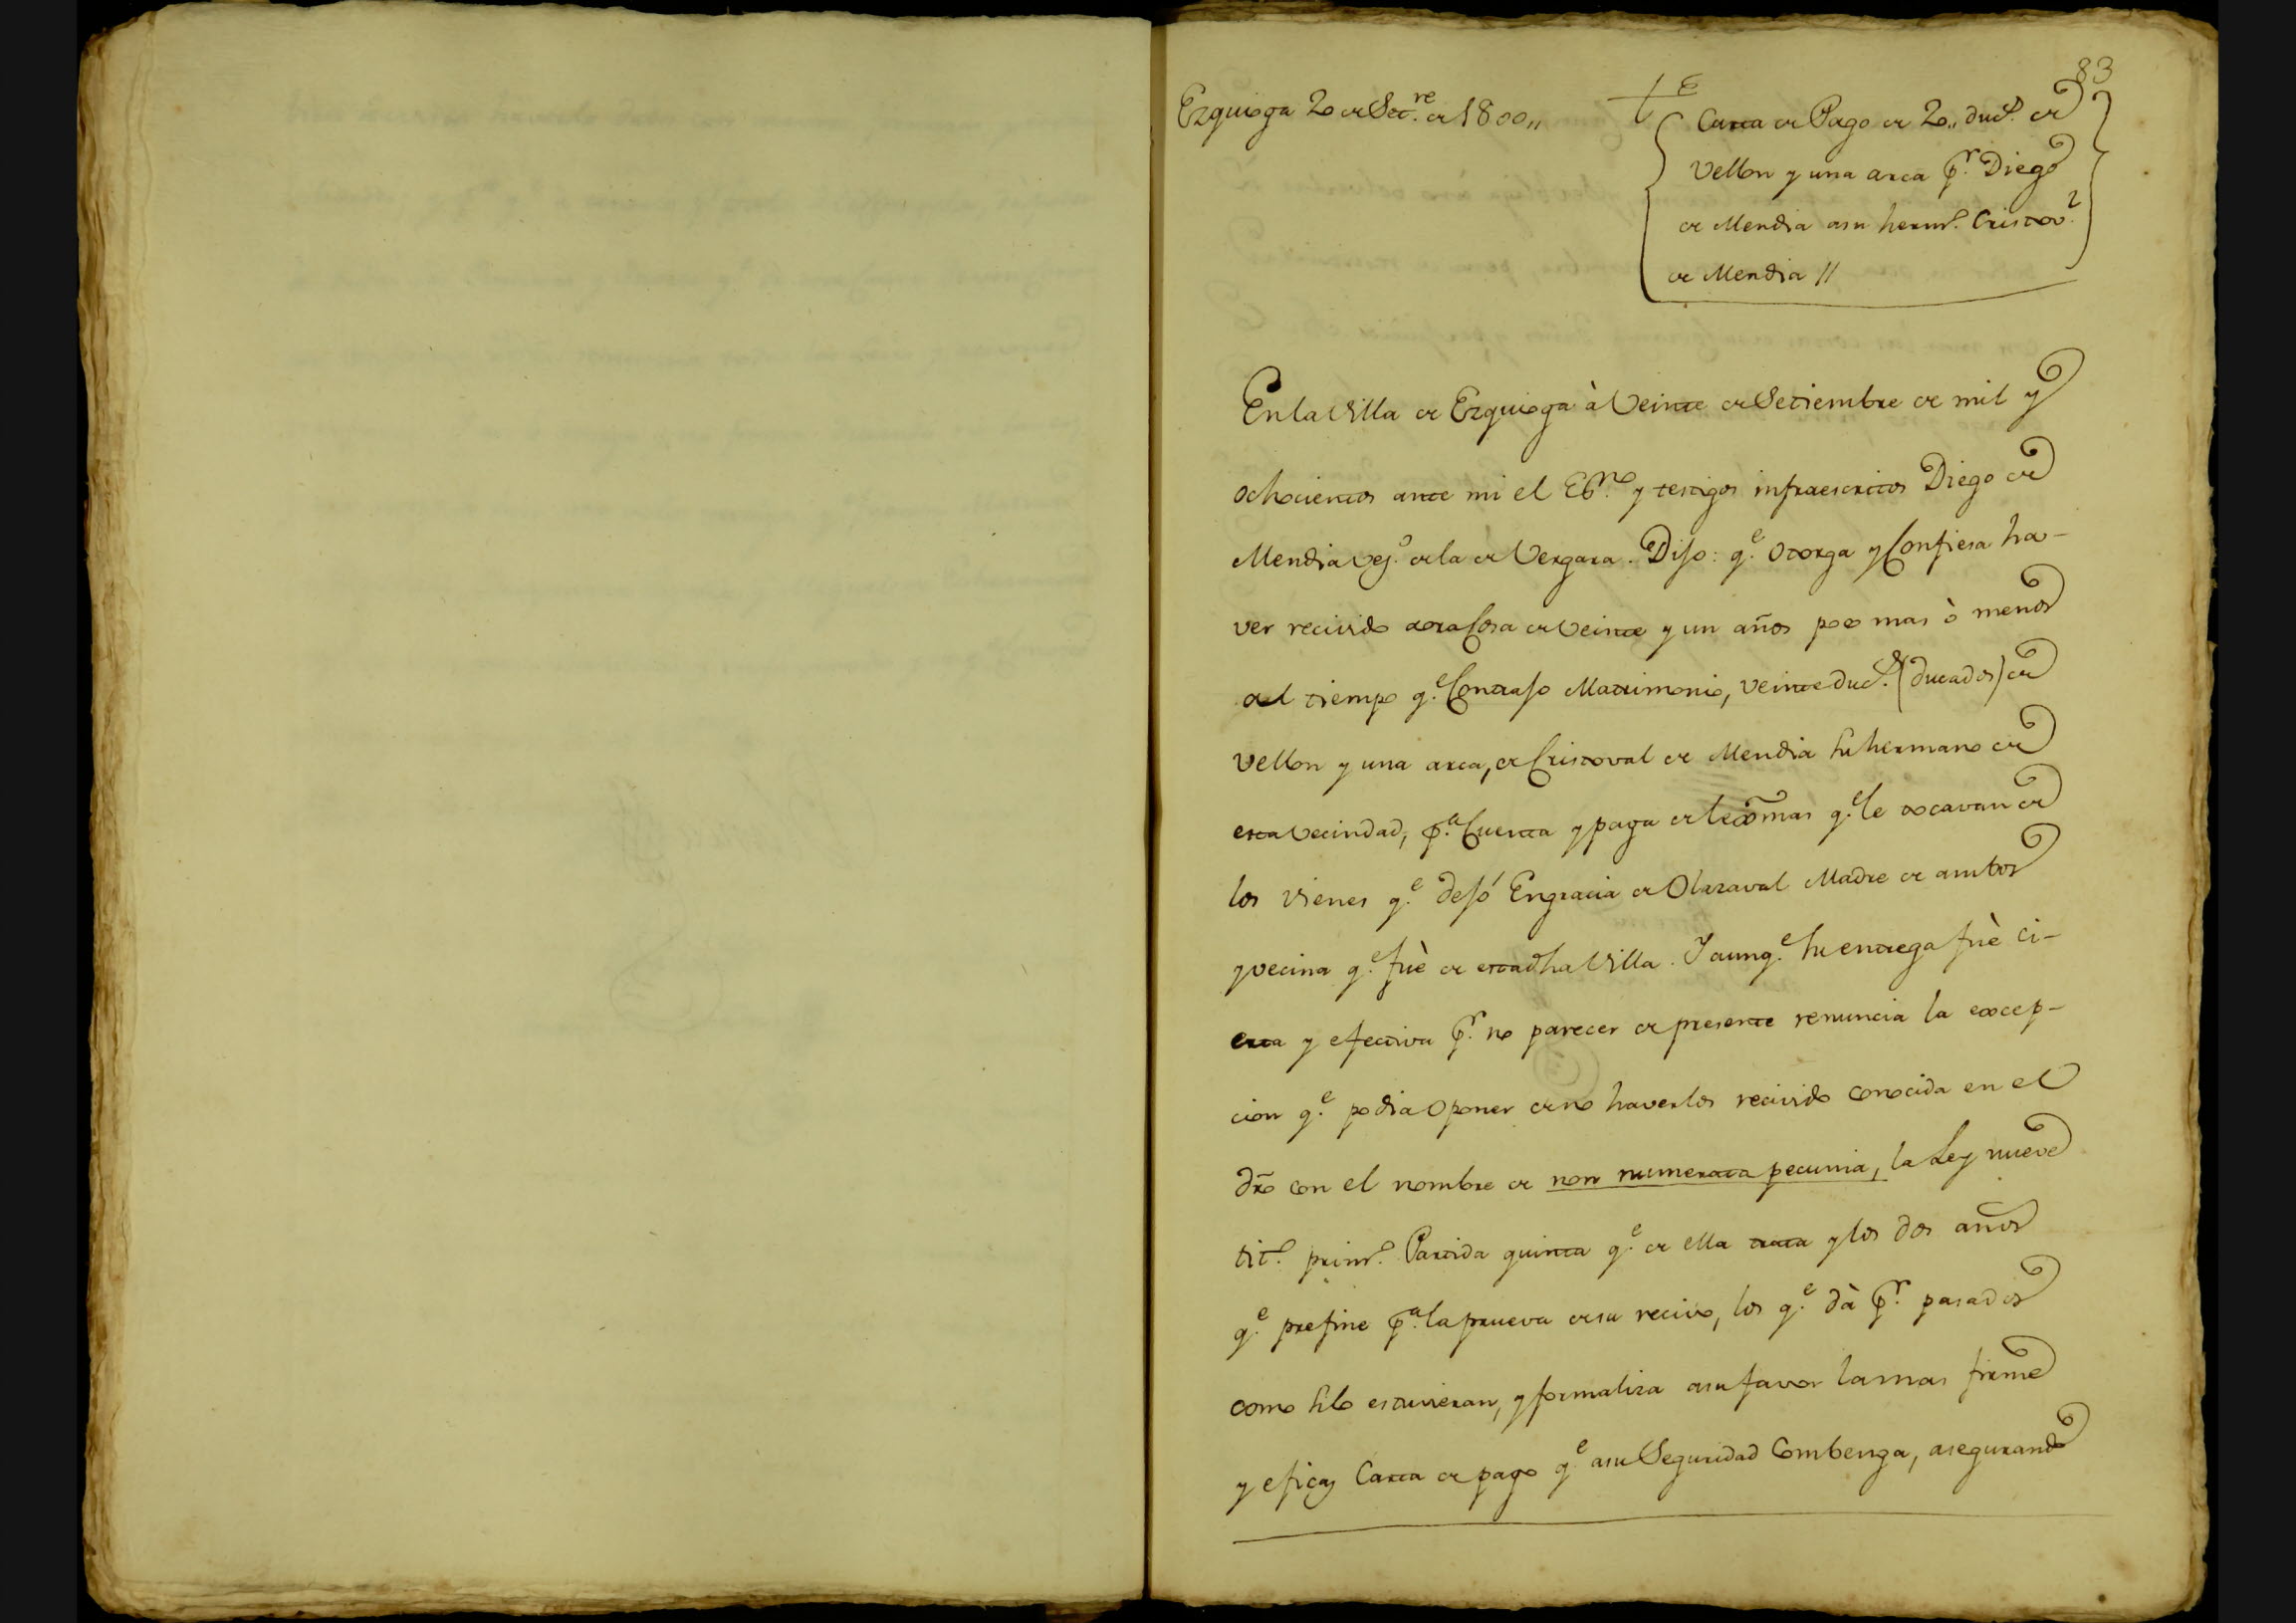 83
Ezquioga 20 de Set.re de 1800,,
Carta de Pago de 20,, duc.s de
Vellon y una arca p.r Diego
de Mendia asu herm.o Cristov.l
de Mendia //
En la Villa de Ezquioga à Veinte de Setiembre de mil y
ochocientos ante mi el Es.no y testigos infraescritos Diego de
Mendia vez.o de la de Vergara. Dijo: q.e otorga y Confiesa ha-
ver recivido aora Cosa de Veinte y un años poco mas ò menos
al tiempo q.e Contrajo Matrimonio, Veinte duc.s (ducados) de
Vellon y una arca, de Cristoval de Mendia su hermano de
esta Vecindad, p.a Cuenta y pago de lexitimas q.e le tocavan de
los Vienes q.e dejó Engracia de Olazaval Madre de ambos
y vecina q.e fuè de esta dha Villa. Y aunq.e su entrega fuè ci-
erta y efectiva p.r no parecer de presente renuncia la excep-
cion q.e podia Oponer de no haverlos recivido conocida en el
dro con el nombre de non numerata pecunia, la Ley nueve
tit.o prim.o Partida quinta q.e de ella trata y los dos años
q.e prefine p.a la prueva de su recivo, los q.e dà p.r pasados
como si lo estuvieran, y formaliza asu favor la mas firme
y eficaz Carta de pago q.e asu Seguridad Combenga, asegurando